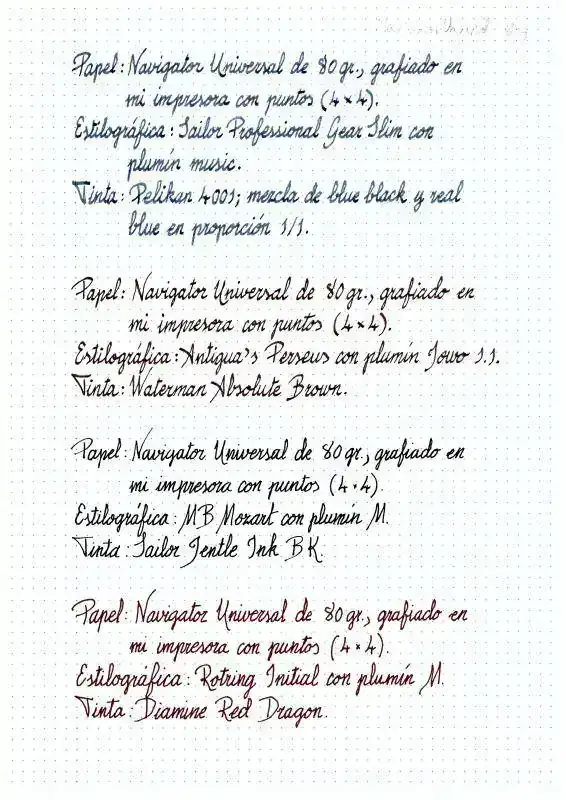 Papel: Navigator Universal de 80 gr., grafiado en
mi impresora con puntos (4×4).
Estilográfica: Sailor Professional Gear Slim con
plumín music.
Tinta: Pelikan 4001; mezcla de blue black y real
blue en proporción 1/1.
Papel: Navigator Universal de 80 gr., grafiado en
mi impresora con puntos (4×4).
Estilográfica: Antigua's Perseus con plumín Jowo 1.1.
Tinta: Waterman Absolute Brown.
Papel: Navigator Universal de 80 gr., grafiado en
mi impresora con puntos (4×4).
Estilográfica: MB Mozart con plumín M.
Tinta: Sailor Jentle Ink BK.
Papel: Navigator Universal de 80 gr., grafiado en
mi impresora con puntos (4×4).
Estilográfica: Rotring Initial con plumín M.
Tinta: Diamine Red Dragon.